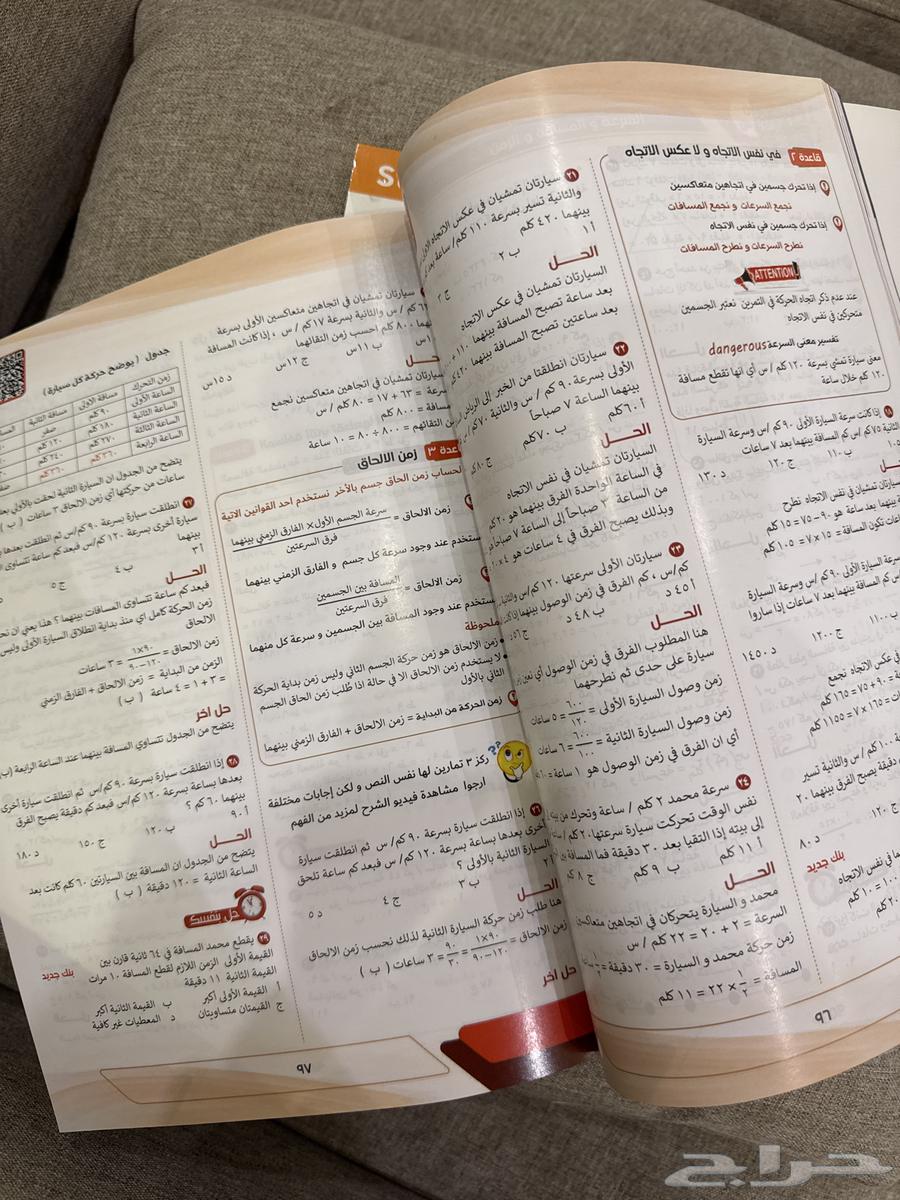 قاعدة ٢ في نفس الاتجاه و لا عكس الاتجاه
إذا تحرك جسمين في اتجاهين متعاكسين
نجمع السرعات و نجمع المسافات
إذا تحرك جسمين في نفس الاتجاه
نطرح السرعات و نطرح المسافات
ATTENTION
عند عدم ذكر اتجاه الحركة في التمرين نعتبر الجسمين
متحركين في نفس الاتجاه
تفسير معنى السرعة dangerous
معنى سيارة تمشي بسرعة ١٢٠ كلم / س أي انها تقطع مسافة
١٢٠ كلم خلال ساعة
١٨ إذا كانت سرعة السيارة الأولى ٩٠ كم/ س وسرعة السيارة
الثانية ٧٥ كم/س كم المسافة بينهما بعد ٧ ساعات
ب ١١٠ ج ١٢٠ د ١٣٠
سيارتان تمشيان في نفس الاتجاه نطرح
بينهما بعد ساعة هو ٩٠ - ٧٥ = ١٥ كلم
ساعات تكون المسافة = ١٥ × ٧ = ١٠٥ كلم
سرعة السيارة الأولى ٩٠ كم/س وسرعة السيارة
كم المسافة بينهما بعد ٧ ساعات إذا ساروا
ب ١١٠٠ ج ١٢٠٠ د ١٤٥٠
في عكس الاتجاه نجمع
= ٩٠ + ٧٥ = ١٦٥ كلم
ساعات = ١٦٥ × ٧ = ١١٥٥ كلم
١٠٠ كلم / س والثانية تسير
دقيقة يصبح الفرق بينهما ٢٠
ج ١٢٠ د ٨٠
بنك جديد
في نفس الاتجاه
= ١٠ كلم
٢٠ كلم
٢١ سيارتان تمشيان في عكس الاتجاه الأولى
والثانية تسير بسرعة ١١٠ كلم/ ساعة بعد
بينهما ٤٢٠ كلم
أ ١ ب ٢ ج ٢
الحل
السيارتان تمشيان في عكس الاتجاه
بعد ساعة تصبح المسافة بينهما ١١٠ +
بعد ساعتين تصبح المسافة بينهما ٤٢٠ كلم
٢٢ سيارتان انطلقتا من الخبر إلى الرياض
الأولى بسرعة ٩٠ كم/ س والثانية ٧٠ كم/ س
بينهما الساعة ٧ صباحاً
أ ٦٠ كلم ب ٧٠ كم ج ٨٠ كم
الحل
السيارتان تمشيان في نفس الاتجاه
في الساعة الواحدة الفرق بينهما هو ٢٠ كم
من الساعة ٣ صباحاً إلى الساعة ٧ صباحاً
وبذلك يصبح الفرق في ٤ ساعات هو ٤ × ٢٠
٢٣ سيارتان الأولى سرعتها ١٢٠ كم/س والثانية
كم/س ، كم الفرق في زمن الوصول بينهما إذا كانت
أ ٤٥ د ب ٤٨ د ج ٥٦ د
الحل
هنا المطلوب الفرق في زمن الوصول أي نعين زمن
سيارة على حدى ثم نطرحهما
زمن وصول السيارة الأولى = ٦٠٠/١٢٠ = ٥ ساعات
زمن وصول السيارة الثانية = ٦٠٠/١٠٠ = ٦ ساعات
أي ان الفرق في زمن الوصول هو ١ ساعة = ٦٠
٢٤ سرعة محمد ٢ كلم / ساعة وتحرك من بيته
نفس الوقت تحركت سيارة سرعتها ٢٠ كلم/ ساعة
إلى بيته إذا التقيا بعد ٣٠ دقيقة فما المسافة
أ ١١ كلم ب ٩ كلم ج ٨ كم
الحل
محمد و السيارة يتحركان في اتجاهين متعاكسين
السرعة = ٢ + ٢٠ = ٢٢ كلم / س
زمن حركة محمد و السيارة = ٣٠ دقيقة =
المسافة = ١/٢ × ٢٢ = ١١ كلم
٩٦
سيارتان تمشيان في اتجاهين متعاكسين الأولى بسرعة
٦٣ كلم / س والثانية بسرعة ١٧ كم / س ، إذا كانت المسافة
بينهما ٨٠٠ كلم احسب زمن التقائهما
ب ١١ س ج ١٢ س د ١٥ س
السيارتان تمشيان في اتجاهين متعاكسين نجمع
السرعة = ٦٣ + ١٧ = ٨٠ كلم / س
المسافة = ٨٠٠ كلم
زمن التقائهم = ٨٠٠ ÷ ٨٠ = ١٠ ساعة
قاعدة ٣ زمن الالحاق
لحساب زمن الحاق جسم بالآخر نستخدم احد القوانين الاتية
زمن الالحاق = سرعة الجسم الأول × الفارق الزمني بينهما / فرق السرعتين
نستخدم عند وجود سرعة كل جسم و الفارق الزمني بينهما
زمن الالحاق = المسافة بين الجسمين / فرق السرعتين
نستخدم عند وجود المسافة بين الجسمين و سرعة كل منهما
ملحوظة
• زمن الالحاق هو زمن حركة الجسم الثاني وليس زمن بداية الحركة
• لا يستخدم زمن الالحاق الا في حالة اذا طُلب زمن الحاق الجسم
الثاني بالأول
زمن الحركة من البداية = زمن الالحاق + الفارق الزمني بينهما
ركز ٣ تمارين لها نفس النص و لكن إجابات مختلفة
ارجوا مشاهدة فيديو الشرح لمزيد من الفهم
٢٦ إذا انطلقت سيارة بسرعة ٩٠ كم/ س ثم انطلقت سيارة
أخرى بعدها بساعة بسرعة ١٢٠ كم/س فبعد كم ساعة تلحق
السيارة الثانية بالأولى ؟
أ ٢ ب ٣ ج ٤ د ٥
الحل
هنا طلب زمن حركة السيارة الثانية لذلك نحسب زمن الالحاق
زمن الالحاق = ١×٩٠/١٢٠-٩٠ = ٩٠/٣٠ = ٣ ساعات ( ب )
حل اخر
جدول ( يوضح حركة كل سيارة )
زمن التحرك مسافة الأولى مسافة الثانية
الساعة الأولى ٩٠ كلم صفر
الساعة الثانية ١٨٠ كلم ١٢٠ كلم
الساعة الثالثة ٢٧٠ كلم ٢٤٠ كلم
الساعة الرابعة ٣٦٠ كلم ٣٦٠ كلم
يتضح من الجدول ان السيارة الثانية لحقت بالأولى بعد
ساعات من حركتها أي زمن الالحاق ٣ ساعات ( ب )
٢٧ انطلقت سيارة بسرعة ٩٠ كم/س ثم انطلقت بعدها
سيارة أخرى بسرعة ١٢٠ كم/س فبعد كم ساعة تتساوى
بينهما
أ ٣ ب ٤ ج ٥
الحل
فبعد كم ساعة تتساوى المسافات بينهما ؟ هذا يعني ان
زمن الحركة كامل أي منذ بداية انطلاق السيارة الأولى وليس
الالحاق
زمن الالحاق = ١×٩٠/١٢٠-٩٠ = ٣ ساعات
الزمن من البداية = زمن الالحاق + الفارق الزمني
= ٣ + ١ = ٤ ساعة ( ب )
حل اخر
يتضح من الجدول تتساوي المسافة بينهما عند الساعة الرابعة (ب)
٢٨ إذا انطلقت سيارة بسرعة ٩٠ كم/س ثم انطلقت سيارة أخرى
بعدها بساعة بسرعة ١٢٠ كم/س فبعد كم دقيقة يصبح الفرق
بينهما ٦٠ كم ؟
أ ٩٠ ب ١٢٠ ج ١٥٠ د ١٨٠
الحل
يتضح من الجدول ان المسافة بين السيارتين ٦٠ كلم كانت بعد
الساعة الثانية = ١٢٠ دقيقة ( ب )
حل بنفسك
٢٩ يقطع محمد المسافة في ٦٤ ثانية قارن بين
القيمة الأولى الزمن اللازم لقطع المسافة ١٠ مرات
القيمة الثانية ١١ دقيقة
بنك جديد
أ القيمة الأولى أكبر ب القيمة الثانية أكبر
ج القيمتان متساويتان د المعطيات غير كافية
٩٧
حراج